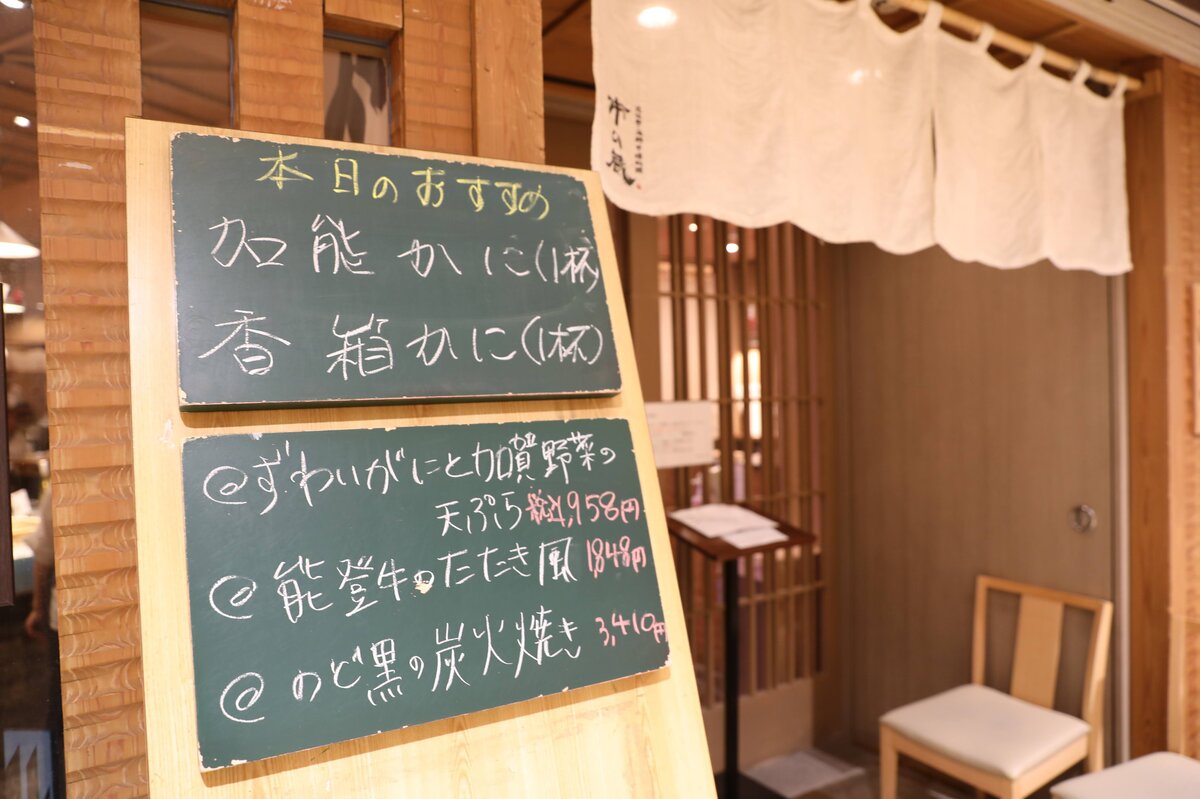 本日のおすすめ
加能かに(1杯)
香箱かに(1杯)
@ずわいがにと加賀野菜の
天ぷら 税込1,958円
@能登牛のたたき風 1,848円
@のど黒の炭火焼き 3,410円